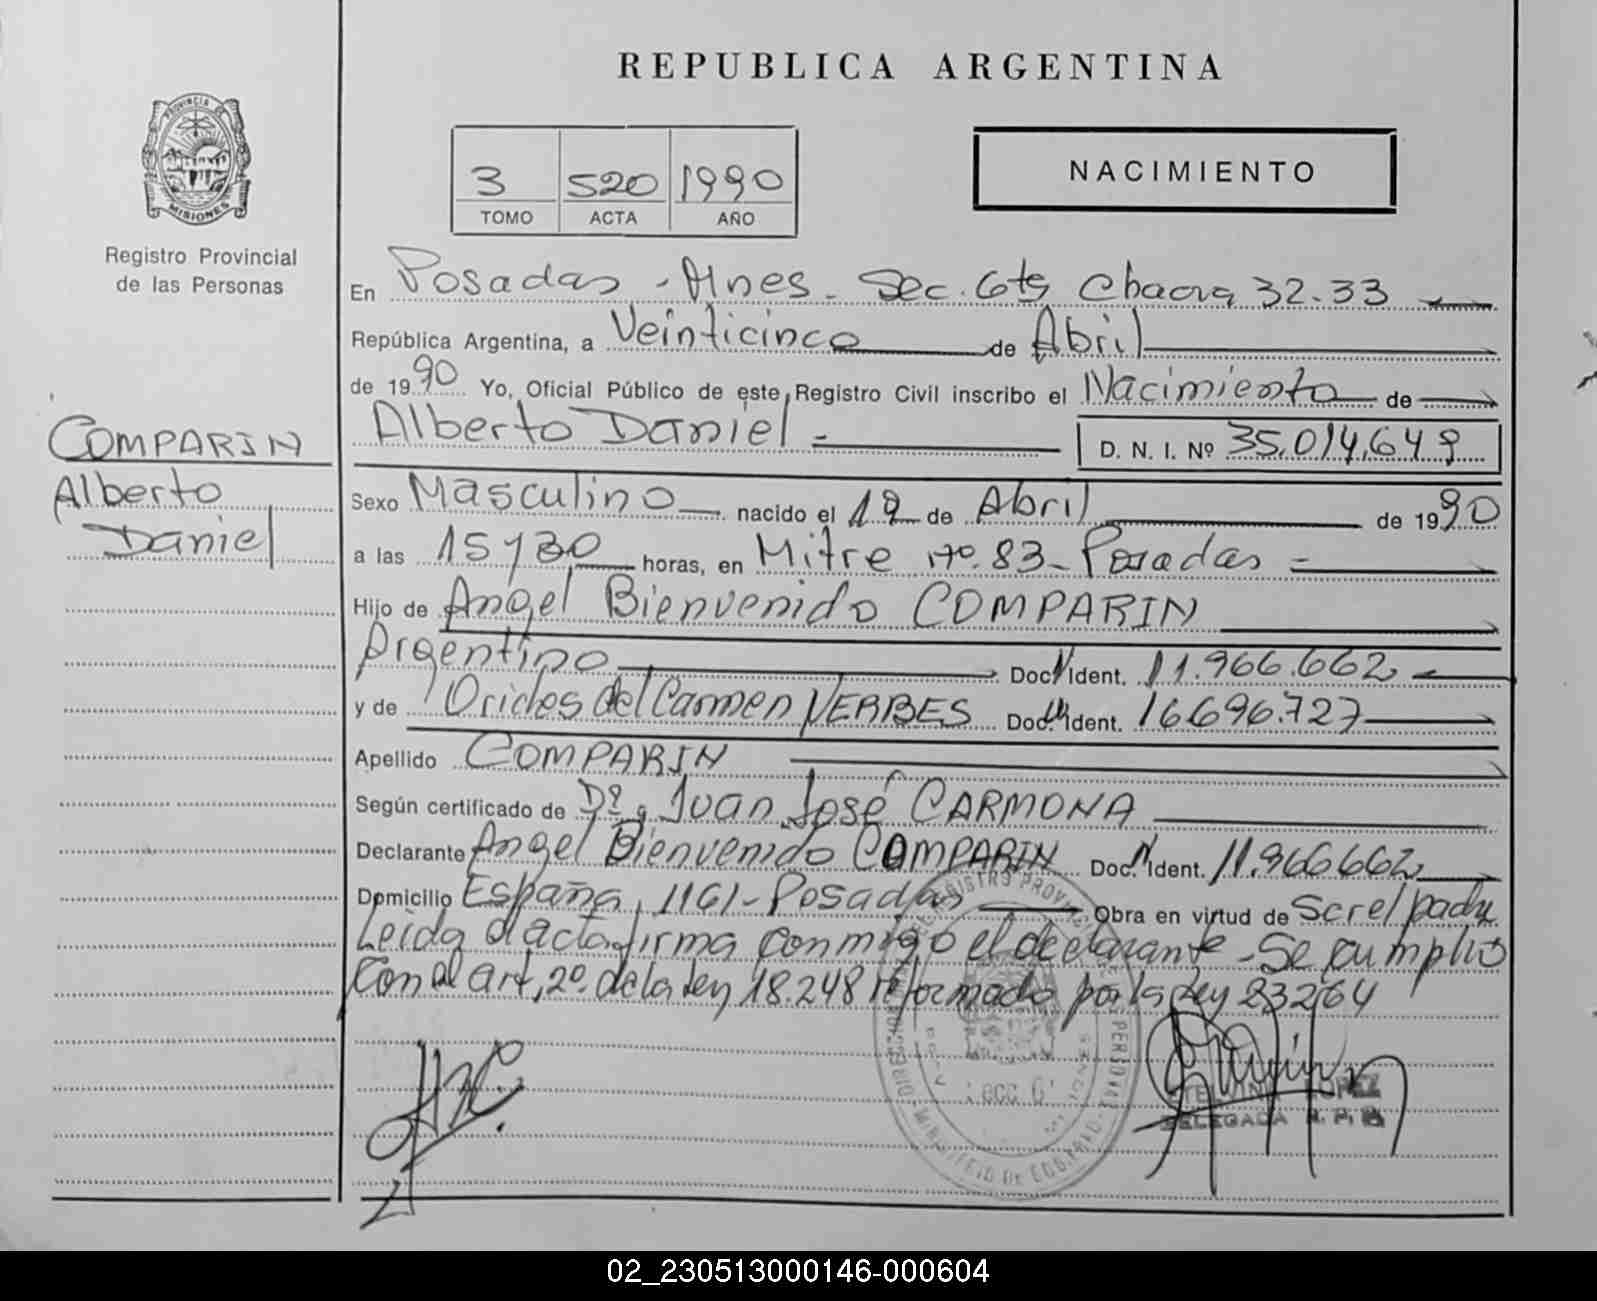 REPUBLICA ARGENTINA
PROVINCIA DE
MISIONES
Registro Provincial
de las Personas
3 520 1990
TOMO ACTA AÑO
NACIMIENTO
En Posadas - Mnes. Sec. 6ta Chacra 32.33
República Argentina, a Veinticinco de Abril
de 1990 Yo, Oficial Público de este Registro Civil inscribo el Nacimiento de
Alberto Daniel D. N. I. Nº 35.014.649
COMPARIN
Alberto
Daniel
Sexo Masculino nacido el 19 de Abril de 1990
a las 15y30 horas, en Mitre nº. 83 - Posadas
Hijo de Angel Bienvenido COMPARIN
Argentino Doc. Ident. 11.966.662
y de Oricles del Carmen VERBES Doc. Ident. 16696.727
Apellido COMPARIN
Según certificado de Dº, Juan José CARMONA
Declarante Angel Bienvenido COMPARIN Doc. Ident. 11.966662
Domicilio España, 1161 - Posadas Obra en virtud de Screl padre
Leida el acta firma conmigo el declarante - Se cumplió
con el art, 2º. de la ley 18.248 reformado por la Ley 23264
LOPEZ
DELEGADA R. P. P.
02_230513000146-000604